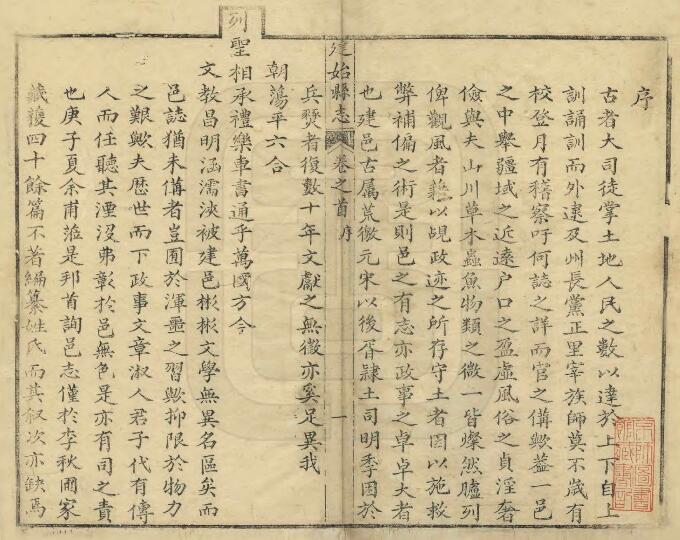 序
古者大司徒掌土地人民之數以達於上下自上
訓誦訓而外逮及州長黨正里宰族師莫不歲有
校登月有稽察吁何誌之詳而官之備歟蓋一邑
之中舉疆域之近遠户口之盈虛風俗之貞淫奢
儉與夫山川草木蟲魚物類之微一皆燦然臚列
俾觀風者藉以覘政迹之所存守土者因以施救
弊補偏之術是則邑之有志亦政事之卓卓大者
也建邑古属荒徼元宋以後胥隷土司明季困於
建始縣志
卷之首
序
一
兵燹者復數十年文獻之無徵亦奚足異我
朝蕩平六合
列聖相承禮樂車書通乎萬國方今
文教昌明涵濡浹被建邑彬彬文學無異名區矣而
邑誌猶未備者豈囿於渾噩之習歟抑限於物力
之艱歟夫歴世而下政事文章淑人君子代有傳
人而任聽其湮沒弗彰於邑無色是亦有司之責
也庚子夏余甫蒞是邦首詢邑志僅於李秋圃家
藏獲四十餘篇不著編纂姓氏而其叙次亦缺焉